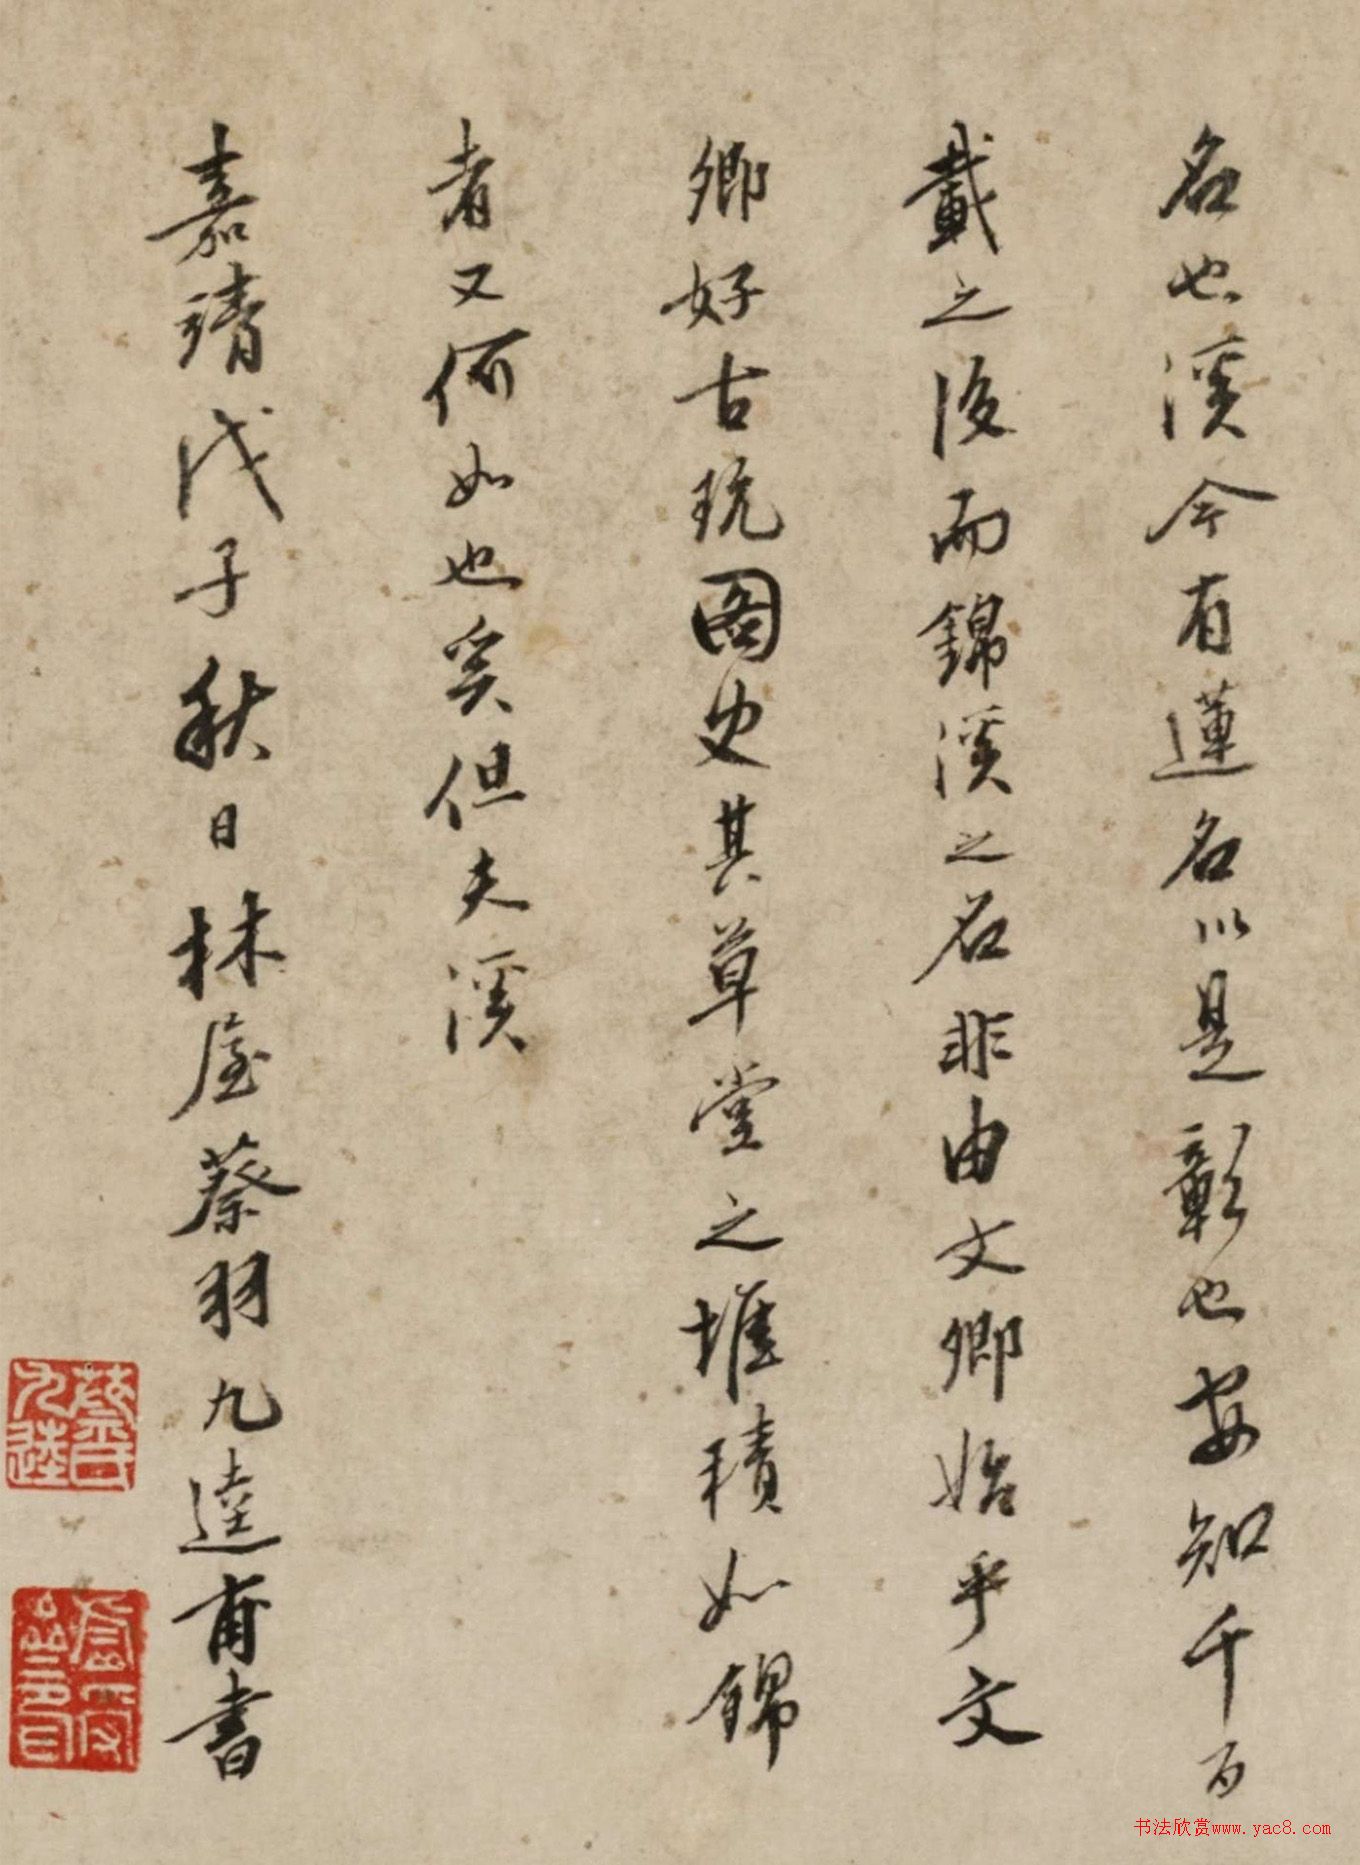 名也溪今有蓮名以是彰也安知千百
載之後而錦溪之名非由文卿始乎文
卿好古玩圖史其草堂之堆積如錦
者又何如也奚但夫溪
嘉靖戊子秋日林屋蔡羽九逵甫書
蔡氏九逵
书法欣赏www.yac8.com